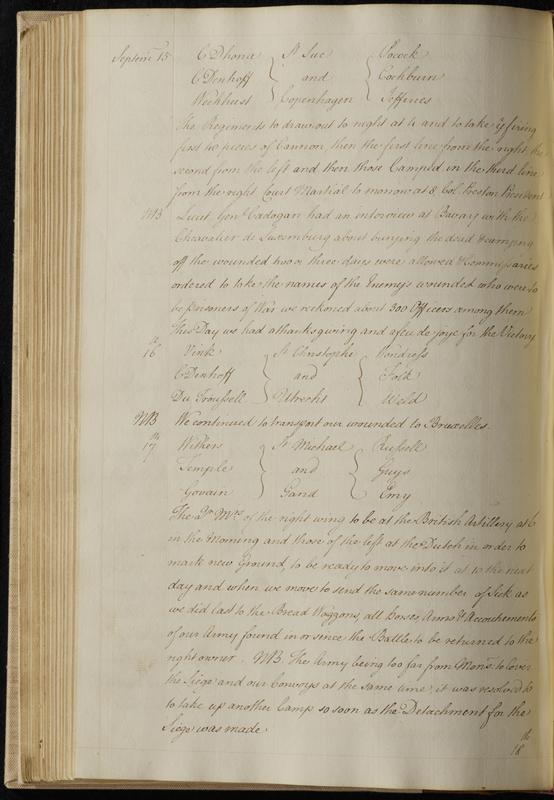 Septemr 15 C Dhona St Luc Pocock
C Denhoff and Cochburn
Weckhust Copenhagen Jefferies
The Regements to draw out to night at 4 and to take ye fireing
first 40 pieces of Cannon then the first line from the right, the
second from the left and then those Camp'd in the therd line
from the right Court Martial to morrow at 8 Col Preston President
NB Lieut Genl Cadogan had an interview at Bavay with the
Cheavalier de Luxemburg about burying the dead & carrying
off the wounded two or three days were allowed & Commissaries
ordered to take the names of the Enemy's wounded who were to
be prisoners of War we reckoned about 300 Officers among them
This Day we had a thanksgiving and a feu de joye for the Victory
16th Vink St Christophe
C Denhoff and
Du Troussell Utrecht Weld
NB We continued to transport our wounded to Bruxelles.
17th Withers St Michael Russell
Temple and Guys
Govain Gand Emy
The Qr Mrs of the right wing to be at the British Artillery at 6
in the Morning and those of the left at the Dutch in order to
mark new Ground, to be ready to move into it at 10 the next
day and when we move to send the same number of Sick as
we did last to the Bread Waggons, all Horses, Arms & Accoutrements
of our Army found in or since the Battle to be returned to the
right owner. NB. The Army being too far from Mons to cover
the Siege and our Convoys at the same time, it was resolved to
to take up another Camp so soon as the Detachment for the
Siege was made
18th